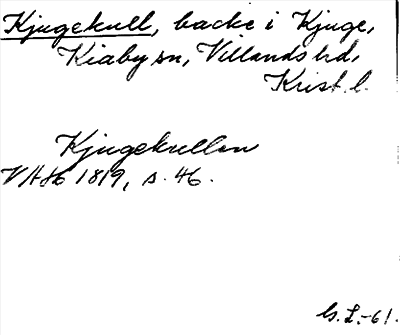 Kjugekull, backe i Kjuge,
Kiaby sn, Villands hd,
Krist. l.
Kjugekullen
VAH 1819, s. 46.
G.L.-61.